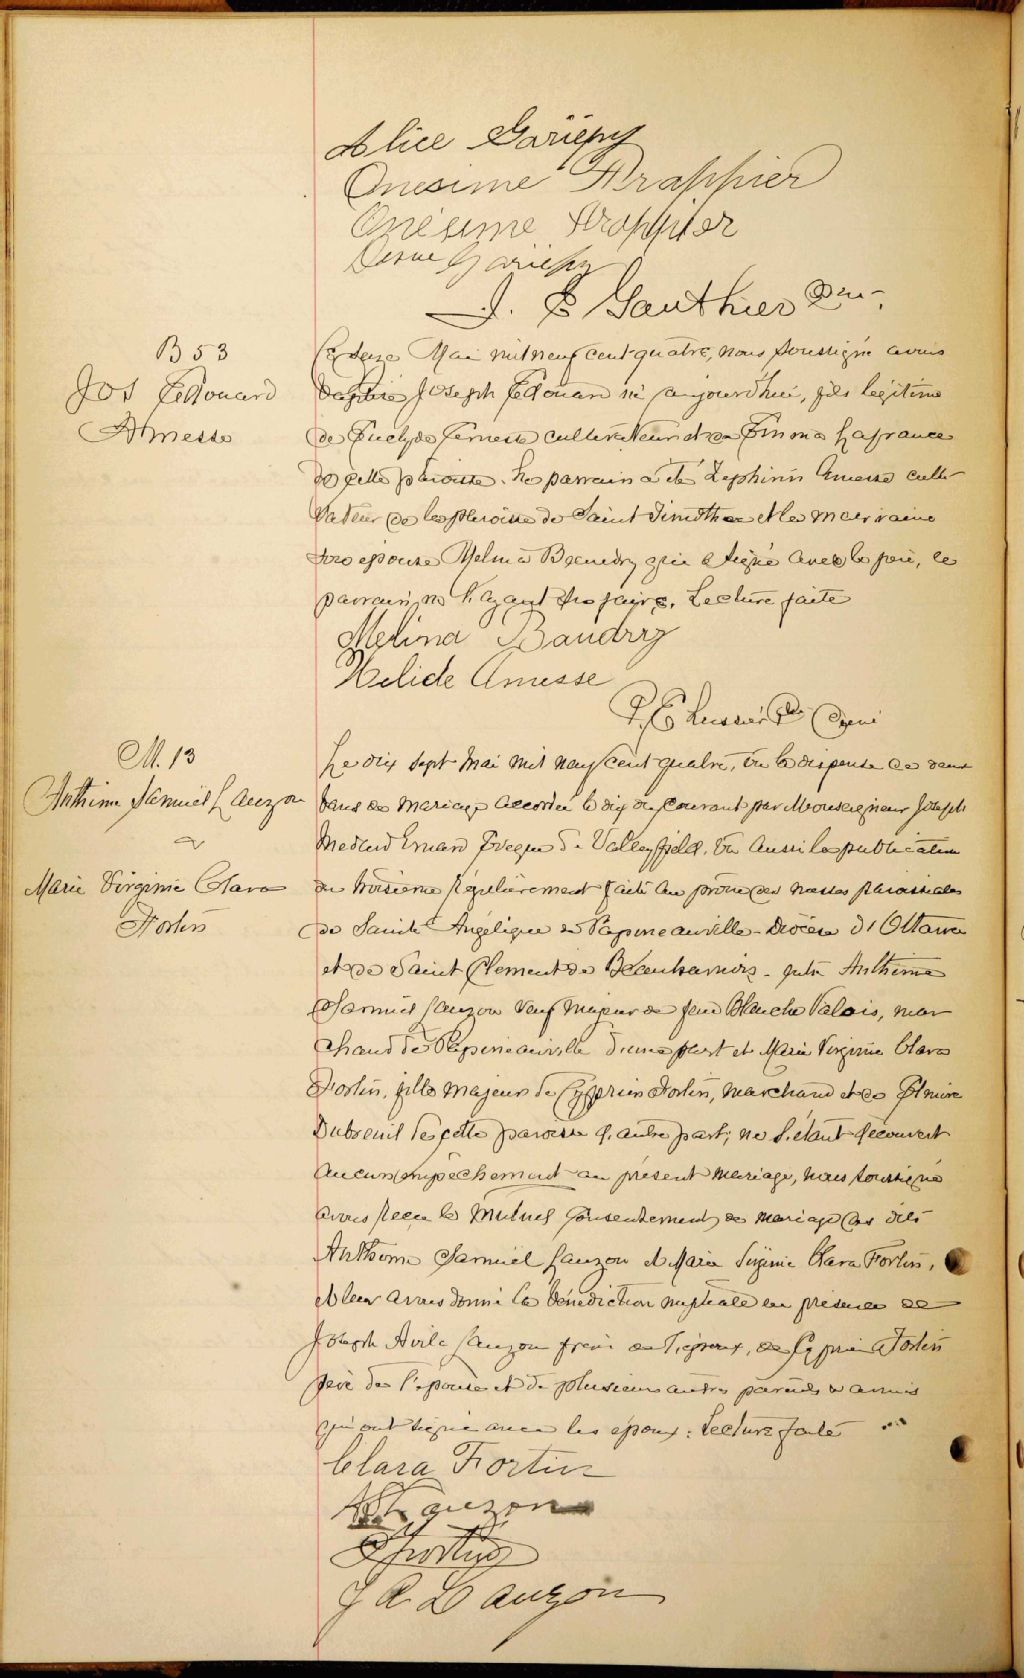 Alice Gariépy
Onesime Frappier
Onésime Frappier
Gariépy
J. E Gauthier Ptre
B 53
Jos Edouard
Amesse
Le seize Mai mil neuf cent quatre, nous soussigné avons
baptisé Joseph Edouard né aujourd'hui, fils légitime
de Euclyde Amesse cultivateur et de Emma Lafrance
de cette paroisse. Le parrain a été Zephirin Amesse culti
vateur de la paroisse de Saint Timothée et la marraine
son épouse Melina Beaudry qui a signé avec le père, le
parrain ne l'ayant su faire. Lecture faite
Melina Baudry
Amesse
P. E Lussier Ptre Curé
M. 13
Anthime Samuel Lauzon
&
Marie Virginie Clara
Fortin
Le dix sept Mai mil neuf cent quatre, vu la dispense de deux
bans de mariage accordée le dix du courant par Monseigneur Joseph
Médard Emard Evêque de Valleyfield, vu aussi la publication
du troisième régulièrement faite au prône des messes paroissiales
de Sainte Angélique de Papineauville Diocèse d'Ottawa
et de Saint Clement de Beauharnois, entre Anthime
Samuel Lauzon veuf majeur de feue Blanche Valois, mar
chand de Papineauville d'une part et Marie Virginie Clara
Fortin, fille majeure de Cyprien Fortin, marchand et de Elmire
Dubreuil de cette paroisse d'autre part; ne s'étant découvert
aucun empêchement au présent mariage, nous soussigné
avons reçu le mutuel consentement de mariage des dits
Anthime Samuel Lauzon et Marie Virginie Clara Fortin,
et leur avons donné la bénédiction nuptiale en présence de
Joseph Avila Lauzon frère de l'époux, de Cyprien Fortin
père de l'épouse et de plusieurs autres parents & amis
qui ont signé avec les époux. Lecture faite
Clara Fortin
A S Lauzon
C Fortin
J A Lauzon